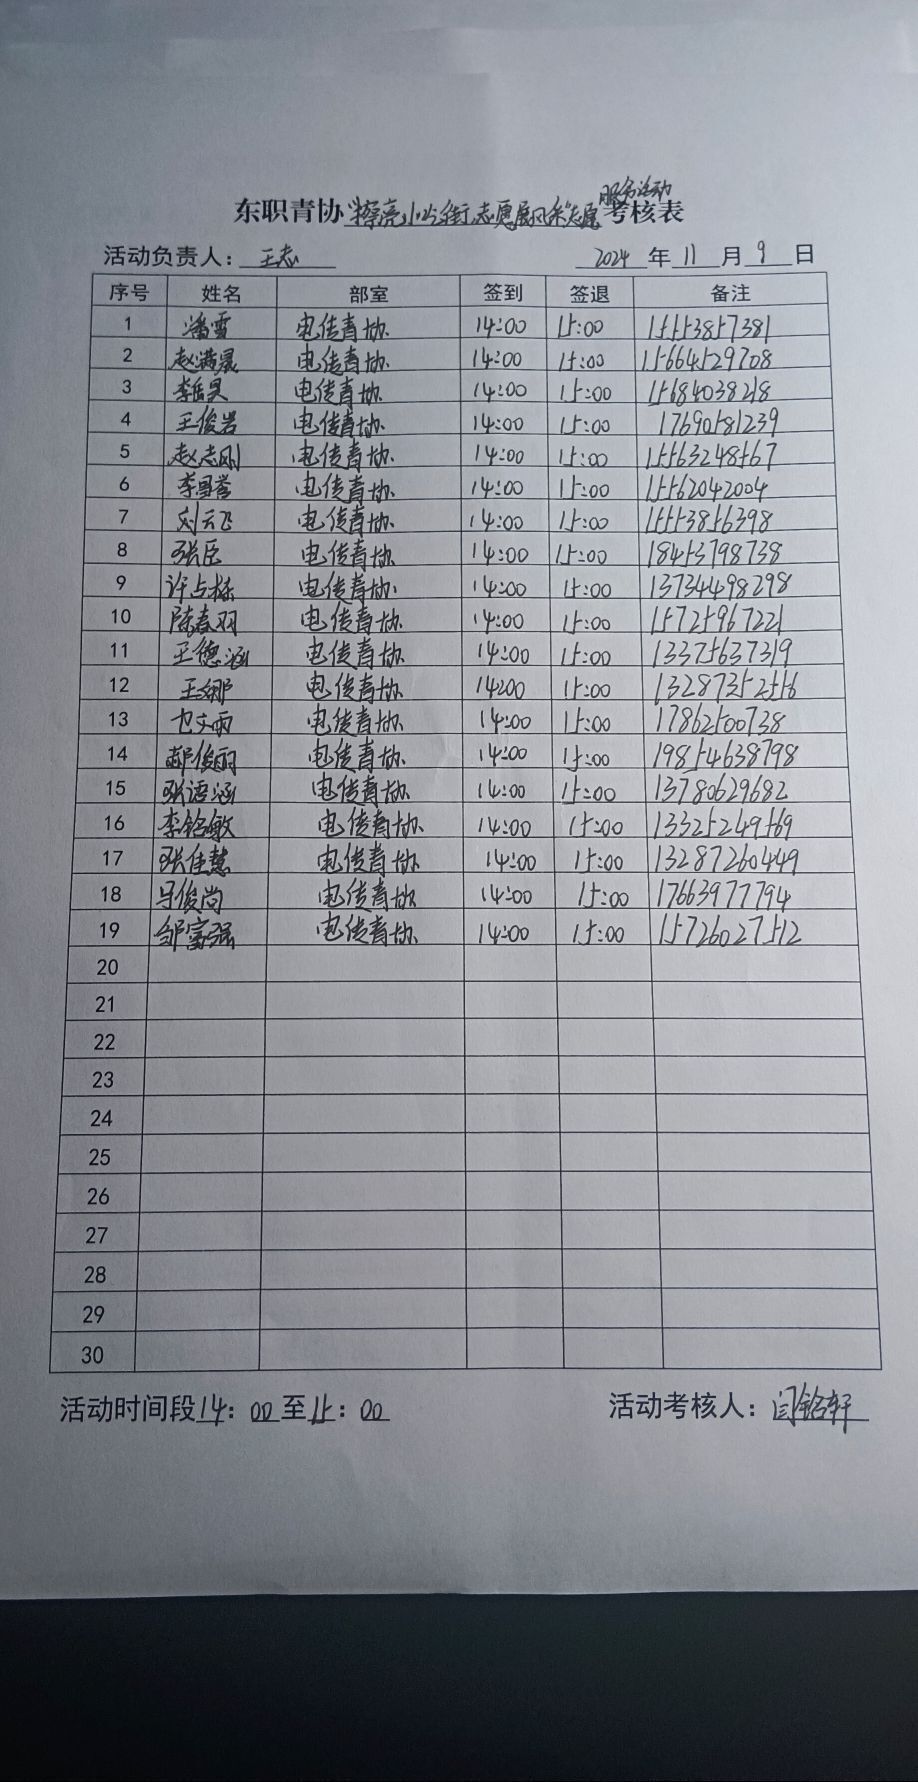 服务活动
东职青协"擦亮小为街,志愿展风采"志愿考核表
活动负责人: 王志 2024 年 11 月 9 日
序号 姓名 部室 签到 签退 备注
1 潘雪 电传青协 14:00 15:00 15553857381
2 赵满晨 电传青协 14:00 15:00 15664529708
3 李昊 电传青协 14:00 15:00 1568403828
4 王俊岩 电传青协 14:00 15:00 17690581239
5 赵志刚 电传青协 14:00 15:00 15563248567
6 李誉 电传青协 14:00 15:00 15562042004
7 刘云飞 电传青协 14:00 15:00 15553856398
8 张臣 电传青协 14:00 15:00 18453798738
9 许占栋 电传青协 14:00 15:00 13734498298
10 陈春羽 电传青协 14:00 15:00 15725967221
11 王德涵 电传青协 14:00 15:00 13375637319
12 王娜 电传青协 14:00 15:00 13287352556
13 文雨 电传青协 14:00 15:00 17862500738
14 郝俊丽 电传青协 14:00 15:00 19854638798
15 张语涵 电传青协 14:00 15:00 13780629682
16 李铭敏 电传青协 14:00 15:00 13325249569
17 张佳慧 电传青协 14:00 15:00 13287260449
18 马俊尚 电传青协 14:00 15:00 17663977794
19 邹富强 电传青协 14:00 15:00 15726027512
20
21
22
23
24
25
26
27
28
29
30
活动时间段 14: 00 至 15: 00 活动考核人: 闫铭轩